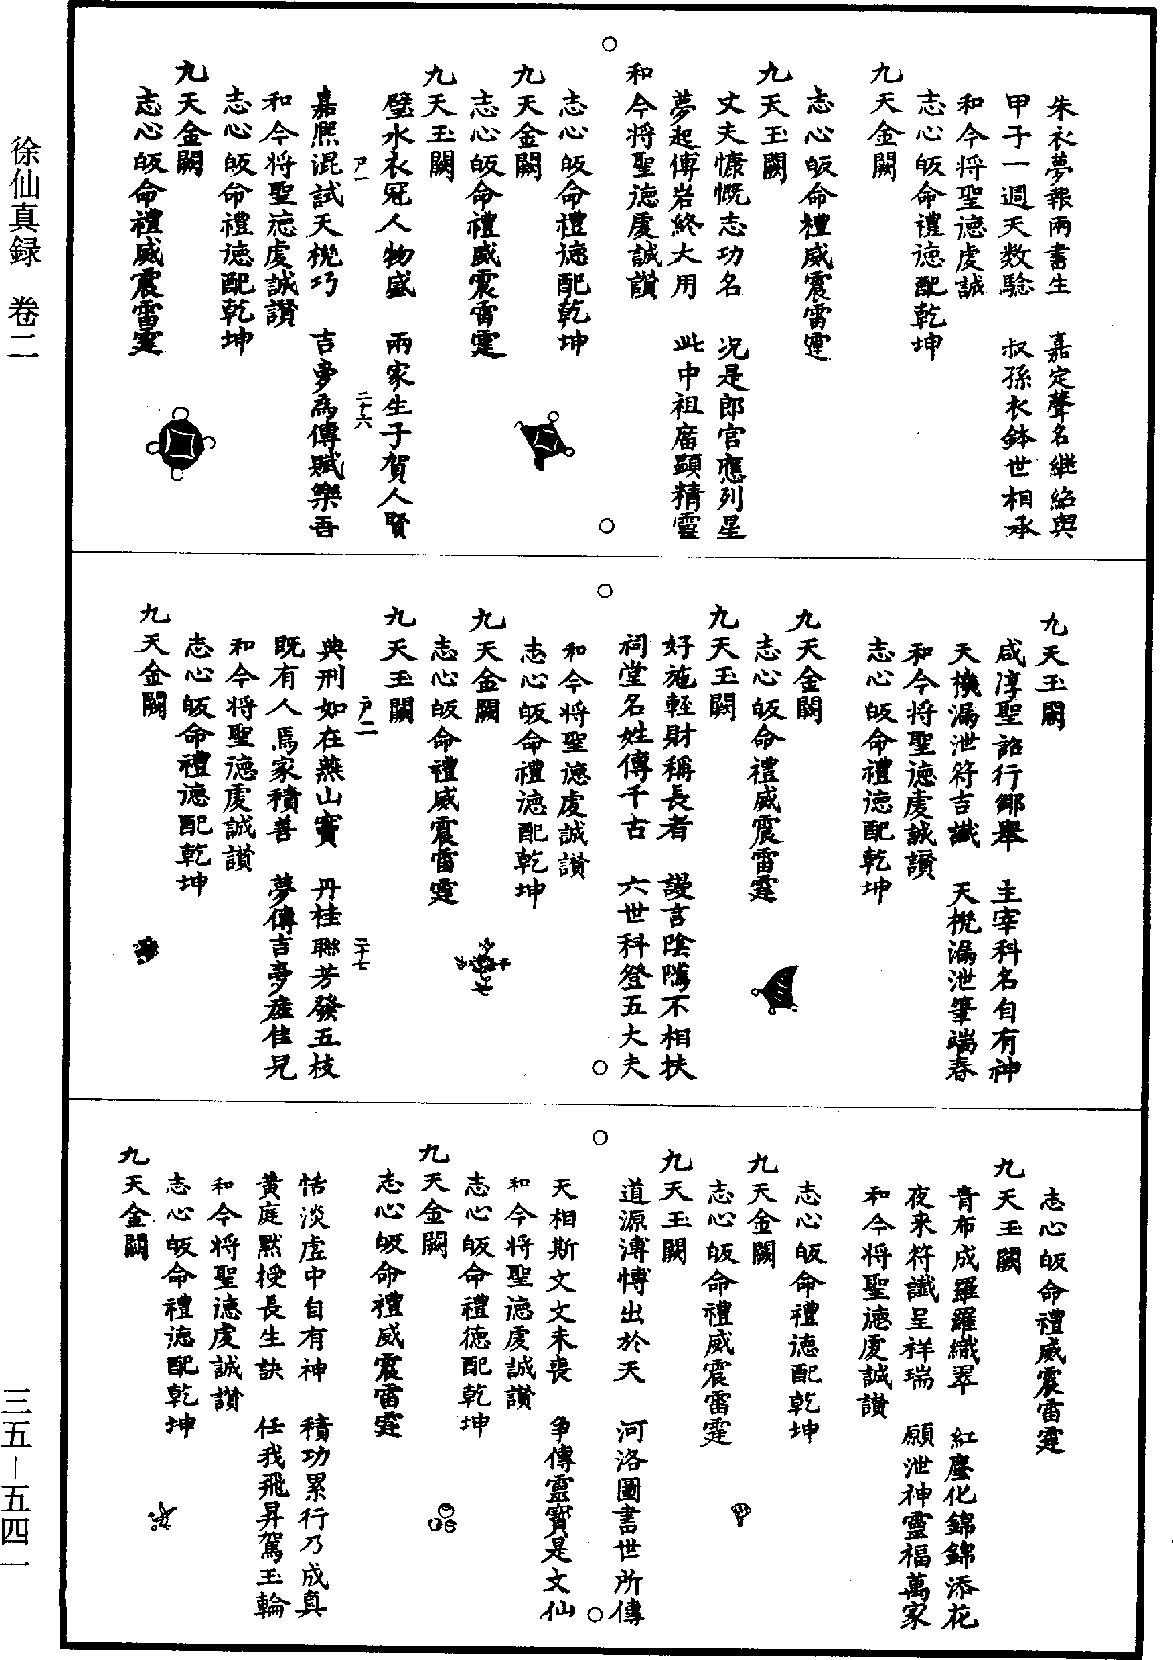 徐仙真録　卷二
三五－五四一
朱衣夢報兩書生　嘉定聲名継紹與
甲子一週天数騐　叔孫衣鉢世相承
和今将聖徳虔誠
志心皈命禮徳配乾坤
九天金闕
志心皈命禮威震雷霆
九天玉闕
丈夫慷慨志功名　况是郎官應列星
夢起傳岩終大用　此中祖廣顕精靈
和今将聖徳虔誠讃
志心皈命禮徳配乾坤
九天金闕
志心皈命禮威震雷霆
九天玉闕
璧水衣冠人物盛　兩家生子賀人賢
戸一　二十六
嘉熈混試天機巧　吉夢為傳賦樂吾
和今将聖徳虔誠讃
志心皈命禮徳配乾坤
九天金闕
志心皈命禮威震雷霆
九天玉闕
咸淳聖詔行鄉舉　主宰科名自有神
天機漏泄符吉讖　天機漏泄筆端春
和今将聖徳虔誠讃
志心皈命禮徳配乾坤
九天金闕
志心皈命禮威震雷霆
九天玉闕
好施輕財稱長者　謾言陰隲不相扶
祠堂名姓傳千古　六世科登五大夫
和今将聖徳虔誠讃
志心皈命禮徳配乾坤
九天金闕
志心皈命禮威震雷霆
九天玉闕
戸二　二十七
典刑如在燕山竇　丹桂聯芳發五枝
既有人焉家積善　夢傳吉夢産佳兒
和今将聖徳虔誠讃
志心皈命禮徳配乾坤
九天金闕
志心皈命禮威震雷霆
九天玉闕
青布成羅羅織翠　紅塵化錦錦添花
夜来符讖呈祥瑞　願泄神靈福萬家
和今将聖徳虔誠讃
志心皈命禮徳配乾坤
九天金闕
志心皈命禮威震雷霆
九天玉闕
道源溥愽出於天　河洛圖書世所傳
天相斯文文未喪　争傳靈寳是文仙
和今将聖徳虔誠讃
志心皈命禮徳配乾坤
九天金闕
志心皈命禮威震雷霆
恬淡虚中自有神　積功累行乃成真
黄庭黙授長生訣　任我飛昇駕玉輪
和今将聖徳虔誠讃
志心皈命禮徳配乾坤
九天金闕